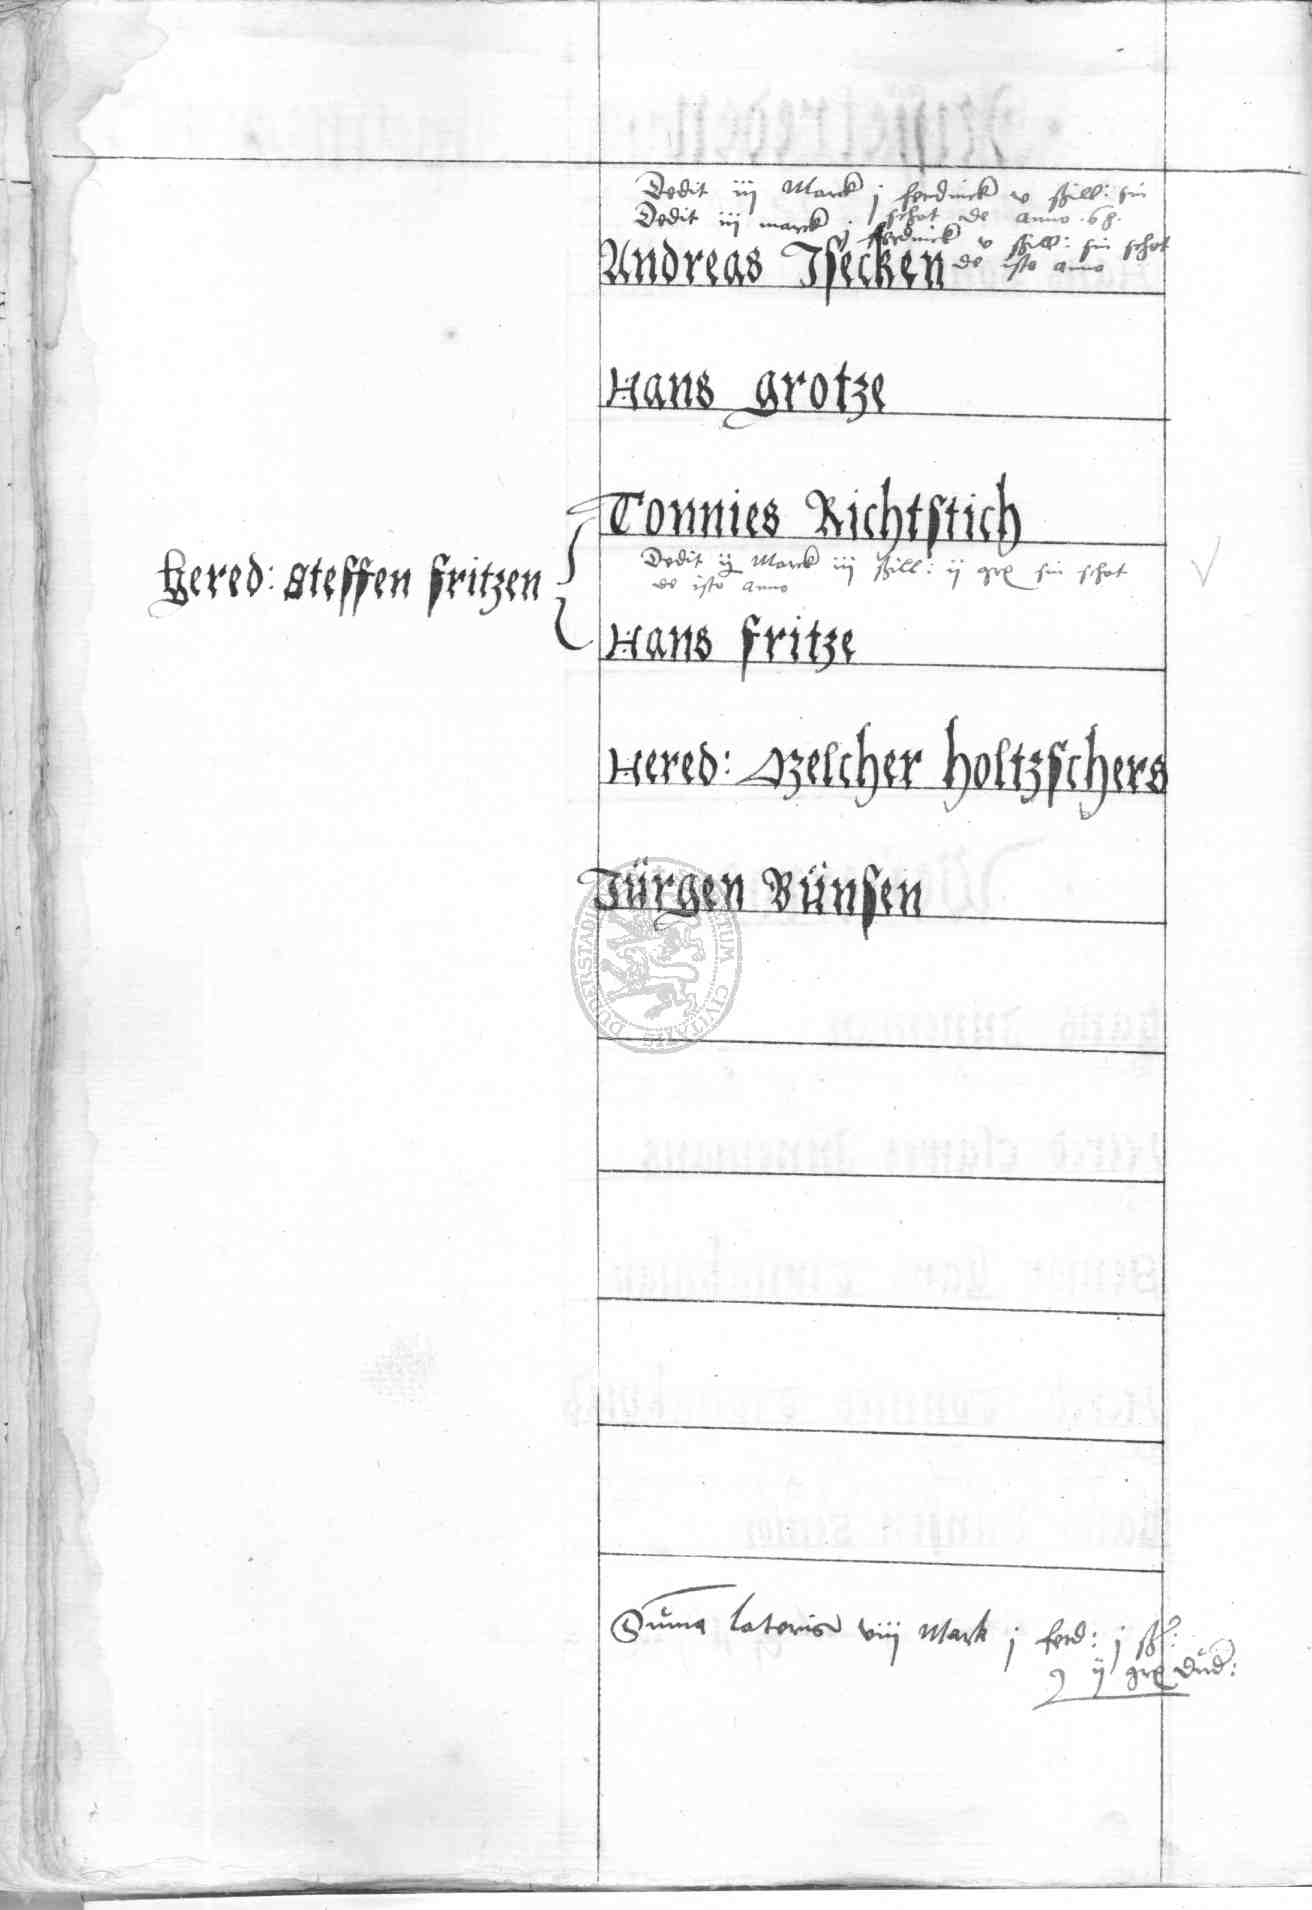 Dedit iij Marck j ferdinck v ßill: sin
schot de anno .68.
Dedit iij marck j ferdinck v ßill: sin schot
de isto anno
Andreas Isecken
Hans grotze
Tonnies Richtstich
Hered: Steffen fritzen
Dedit ij Marck iij ßill: ij grꝭ sin schot
de isto anno
Hans fritze
Hered: Melcher holtzschers
Jürgen Bünsen
DUDERSTADI CIVITATIS
Suma lateris viij Mark j ferd: j ß:
ij grꝭ Dud: